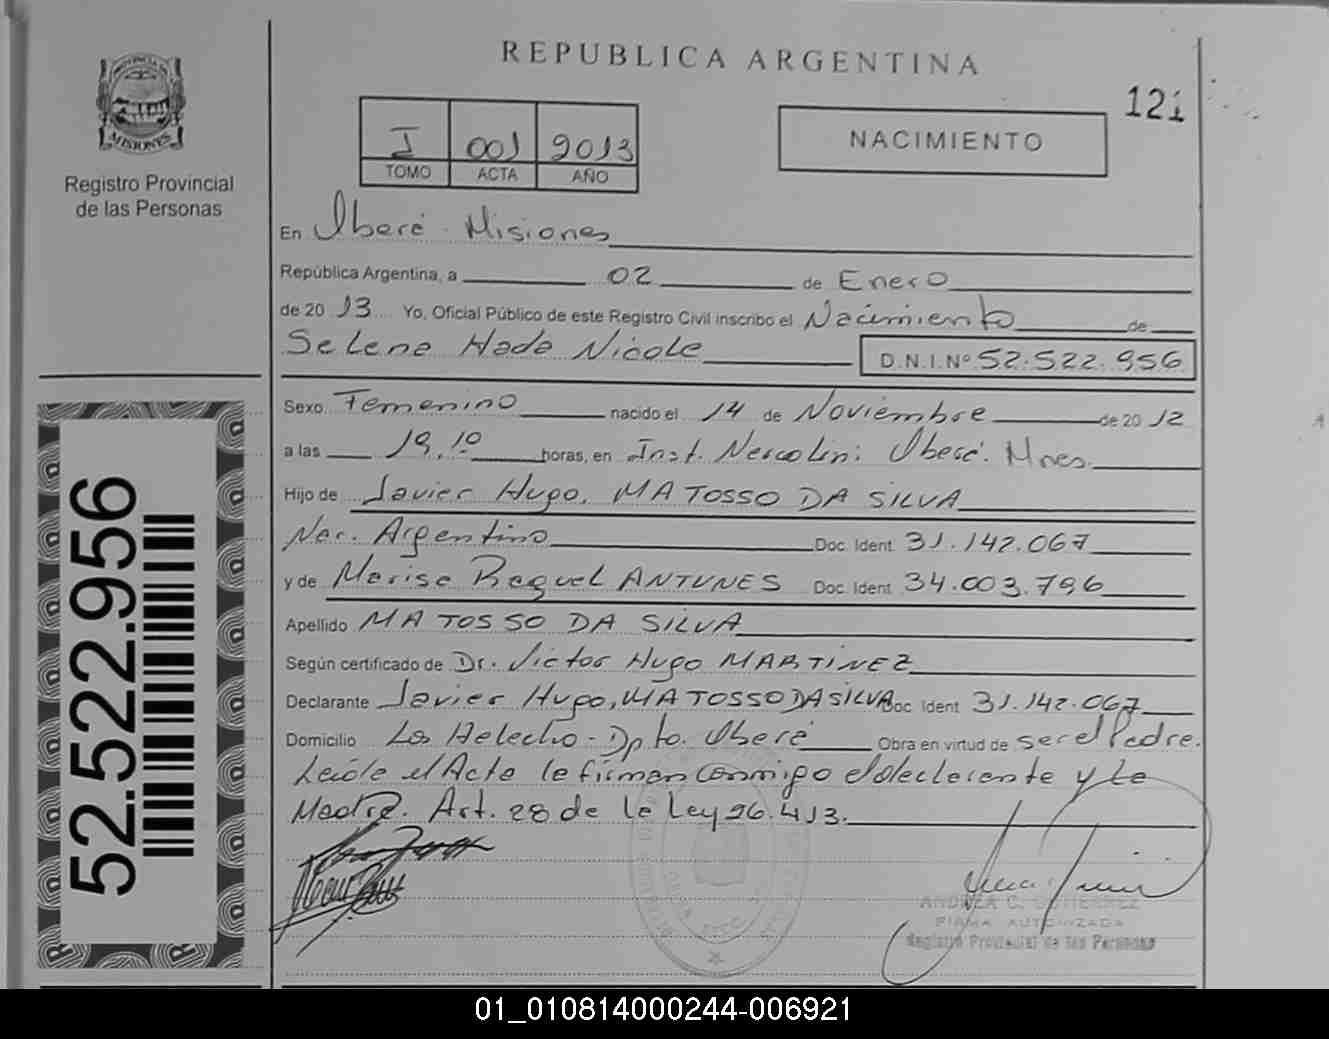 REPUBLICA ARGENTINA
121
MISIONES
Registro Provincial
de las Personas
I 001 2013
TOMO ACTA AÑO
NACIMIENTO
En Oberá - Misiones
República Argentina, a 02 de Enero
de 2013 Yo, Oficial Público de este Registro Civil inscribo el Nacimiento de
Selene Hada Nicole D.N.I.Nº 52.522.956
Sexo Femenino nacido el 14 de Noviembre de 2012
a las 19,10 horas, en Inst. Nercolini Oberá. Mnes.
Hijo de Javier Hugo, MATOSSO DA SILVA
Nac. Argentino Doc. Ident. 31.142.067
y de Marisa Raquel ANTUNES Doc. Ident. 34.003.796
Apellido MATOSSO DA SILVA
Según certificado de Dr. Victor Hugo MARTINEZ
Declarante Javier Hugo, MATOSSO DA SILVA Doc. Ident. 31.142.067
Domicilio Los Helecho - Dpto. Oberá Obra en virtud de ser el Padre.
Leída el Acta la firman conmigo el declarante y la
Madre. Art. 28 de la Ley 26.413.
52.522.956
ANDREA C. GUTIERREZ
FIRMA AUTORIZADA
Registro Provincial de las Personas
01_010814000244-006921